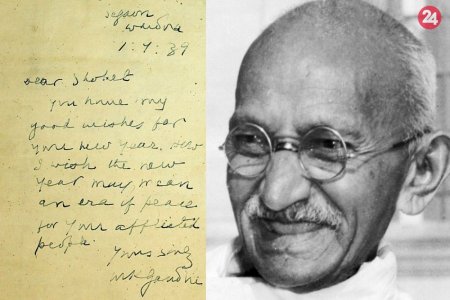 24
Segaon
Wardha
1.9.39
Dear Shohet
You have my
good wishes for
your new year. How
I wish the new
year may mean
an era of peace
for your afflicted
people.
Yours
MKGandhi